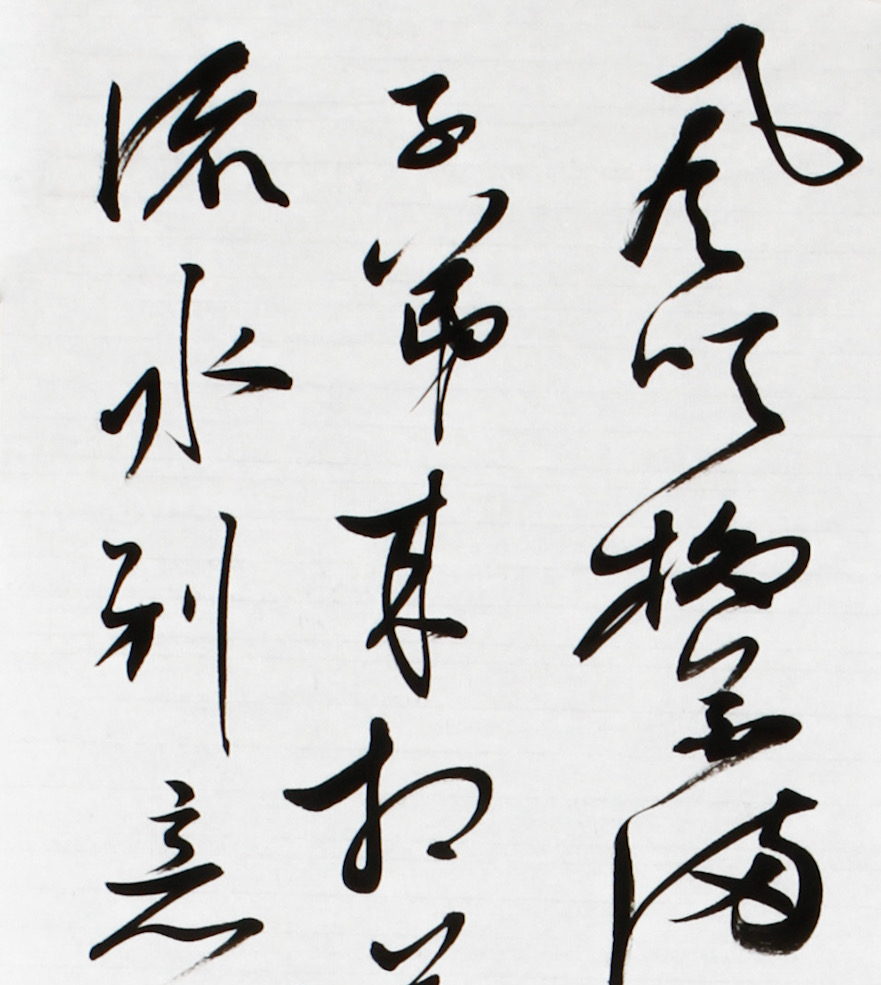 風吹柳花滿
子弟来相
流水别意